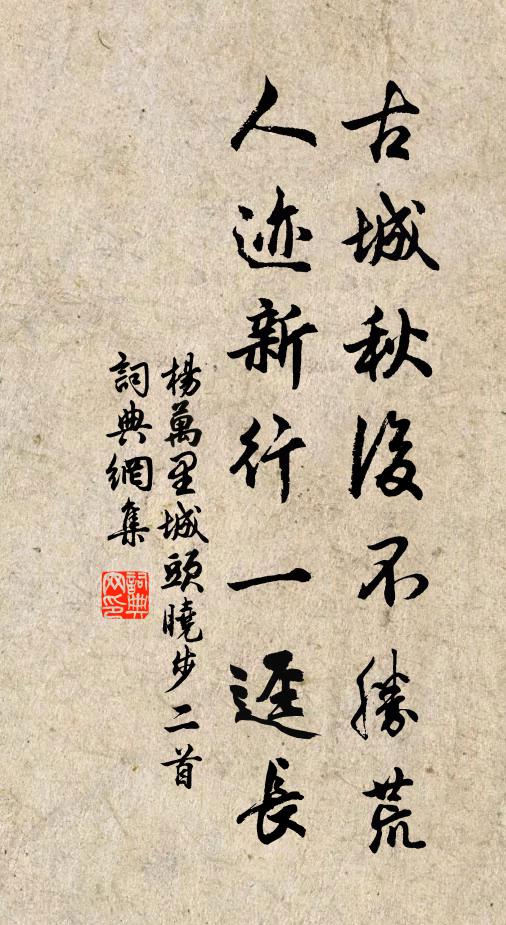 古城秋後不勝荒
人迹新行一逕長
楊萬里城頭曉步二首
詞典網集
詞典
网印